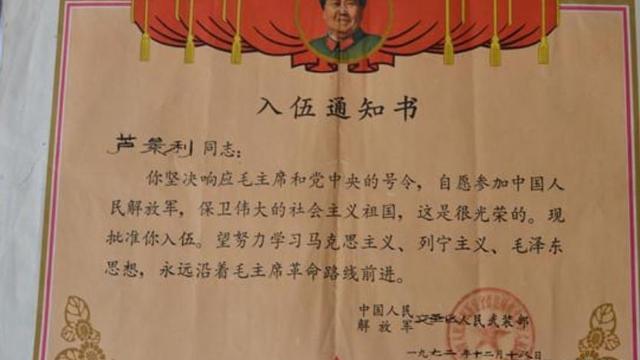 入伍通知书
芦集利 同志：
你坚决响应毛主席和党中央的号令，自愿参加中国人
民解放军，保卫伟大的社会主义祖国，这是很光荣的。现
批准你入伍。望努力学习马克思主义、列宁主义、毛泽东
思想，永远沿着毛主席革命路线前进。
中国人民
解放军 人民武装部
一九七二年十二月十八日